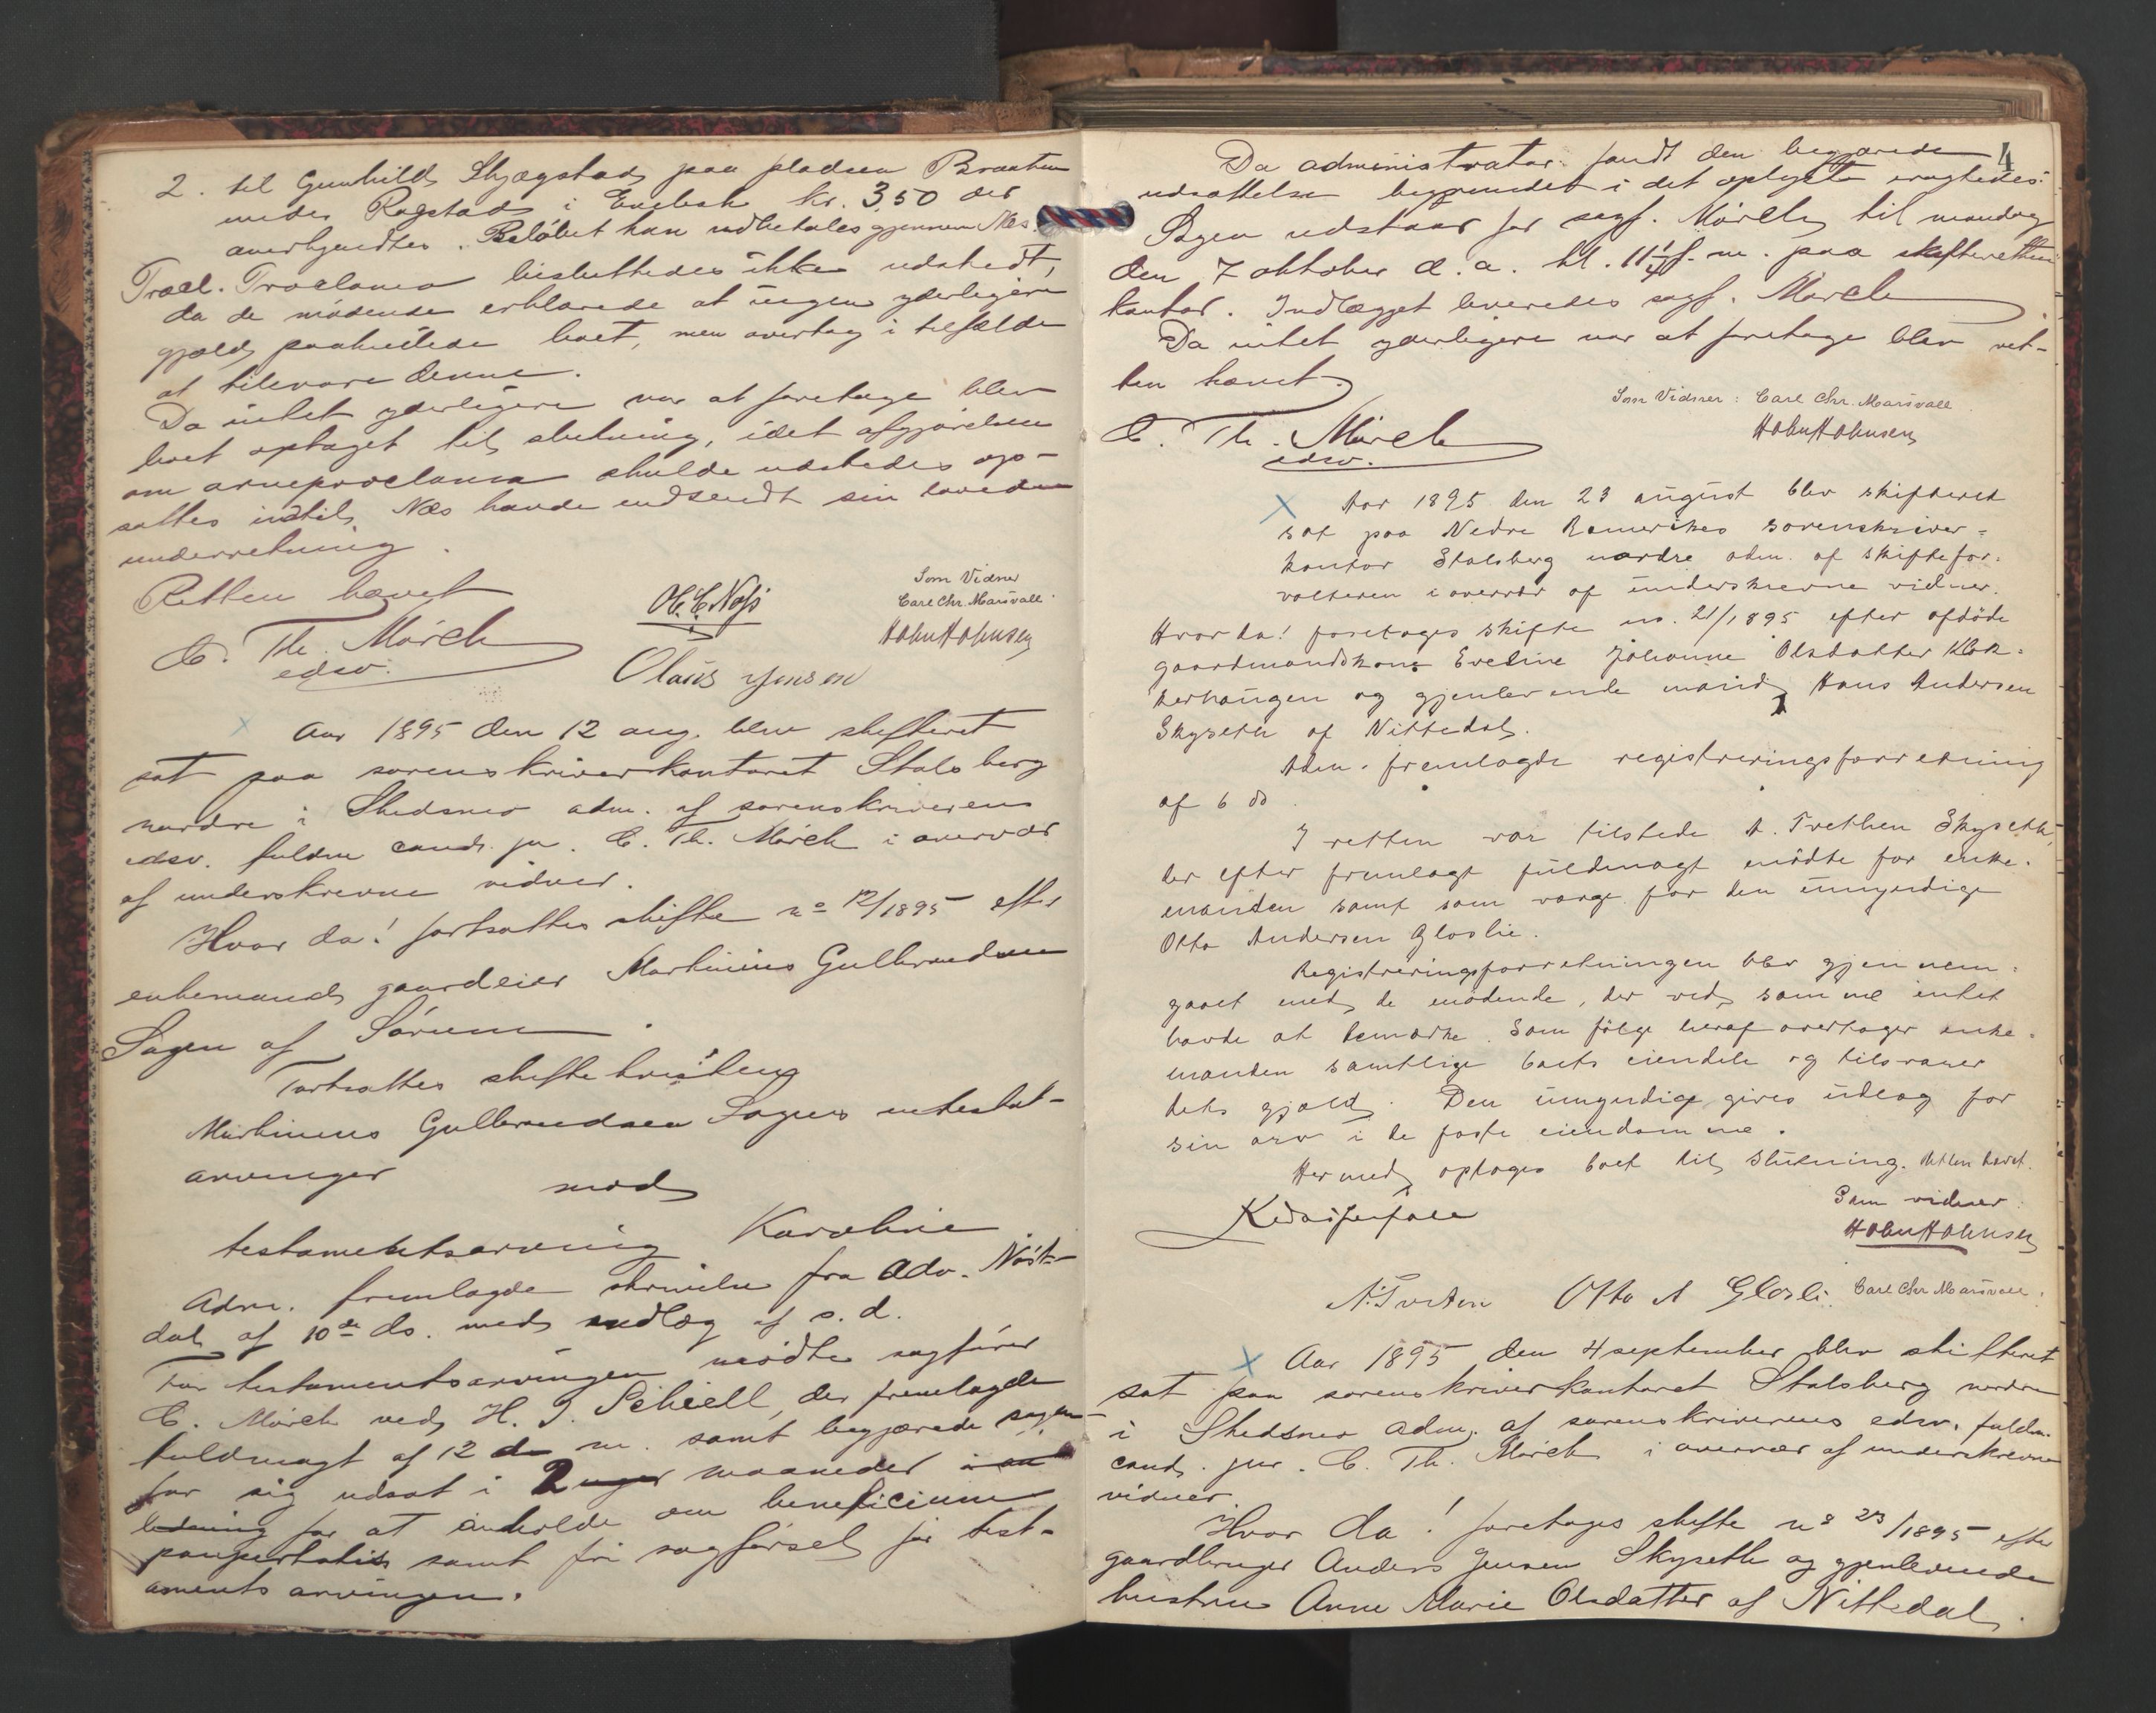 2. til Gunhild Skjægstad paa pladsen Braaten
under Rogstad i Enebak kr. 3.50 der
overhyndtes. Beløbet kan udbetales gjennem Næs.
Procl. Proclama besluttedes ikke udstedt,
da de mødende erklærede at ingen yderligere
gjæld paahvilede boet, men overtog i tilfælde
at tilsvare denne.
Da intet yderligere var at foretage blev
boet optaget til slutning, idet afgjørelsen
om arveproclama skulde udstedes op-
sattes indtil Næs havde indsendt sin lovede
underretning.
Retten hævet
C. Th. Mørch
edsv.
O. C. Næss
Olaus Jensen
Som Vidner
Carl Chr. Marsvall
John Johnsen
Aar 1895 den 12 aug. blev skifteret
sat paa sorenskriverkontoret Stalsberg
nordre i Skedsmo adm. af sorenskriverens
edsv. fuldm. cand. jur. C. Th. Mørch i overvær
af underskrevne vidner.
Hvor da! fortsattes skifte no 12/1895 efter
enkemand gaardeier Martinius Gulbrandsen
Sagen af Sørum.
Fortsattes skiftetvisten
Martinius Gulbrandsen Sagens intestat-
arvinger
mod
testamentsarving Karoline
Adm. fremlagde skrivelse fra Adv. Nøst-
dal af 10de ds. med indlæg af s. d.
For testamentsarvingen mødte sagfører
C. Mørch ved H. J. Schiell, der fremlagde
fuldmagt af 12 d. m. samt begjærede sagen
for sig udsat i 2 uger maaneder i an
ledning for at anholde om beneficium
paupertatis samt fri sagførsel for test-
amentsarvingen.
4
Da administrator fandt den begjærede
udsættelse begrundet i det oplyste eragtedes:
Sagen udstaar for sagf. Mørch til mandag
den 7 oktober d. a. kl. 11¼ f. m. paa skifterettens
kontor. Indlægget leveredes sagf. Mørch
Da intet yderligere var at foretage blev ret-
ten hævet.
C. Th. Mørch
edsv.
Som Vidner: Carl Chr. Marsvall
John Johnsen
Aar 1895 den 23 august blev skifteret
sat paa Nedre Romerikes sorenskriver=
kontor Stalsberg nordre adm. af skiftefor=
valteren i overvær af underskrevne vidner.
Hvor da! foretages skifte no. 21/1895 efter afdøde
gaardmandskone Eveline Johanne Olsdatter Klok=
kerhaugen og gjenlevende mand Hans Andersen
Skyseth af Nittedal.
Adm. fremlagde registreringsforretning
af 6 ds.
I retten var tilstede A. Tvethen Skyseth,
der efter fremlagt fuldmagt mødte for enke=
manden samt som værge for den umyndige
Otto Andersen Gloslie.
Registreringsforretningen blev gjennem=
gaaet med de mødende, der ved samme intet
havde at bemærke. Som følge heraf overtager enke=
manden samtlige boets eiendele og tilsvarer
dets gjæld. Den umyndige gives udlæg for
sin arv i de faste eiendomme.
Hermed optages boet til slutning. Retten hævet.
Som vidner.
John Johnsen
A. Tveten Otto A Glosli. Carl Chr Marsvall.
Aar 1895 den 4 september blev skifteret
sat paa sorenskriverkontoret Stalsberg nordre
i Skedsmo adm. af sorenskriverens edsv. fuldm.
cand. jur. C. Th. Mørch i overvær af underskrevne
vidner.
Hvor da! foretages skifte no 23/1895 efter
gaardbruger Anders Jensen Skyseth og gjenlevende
hustru Anne Marie Olsdatter af Nittedal.